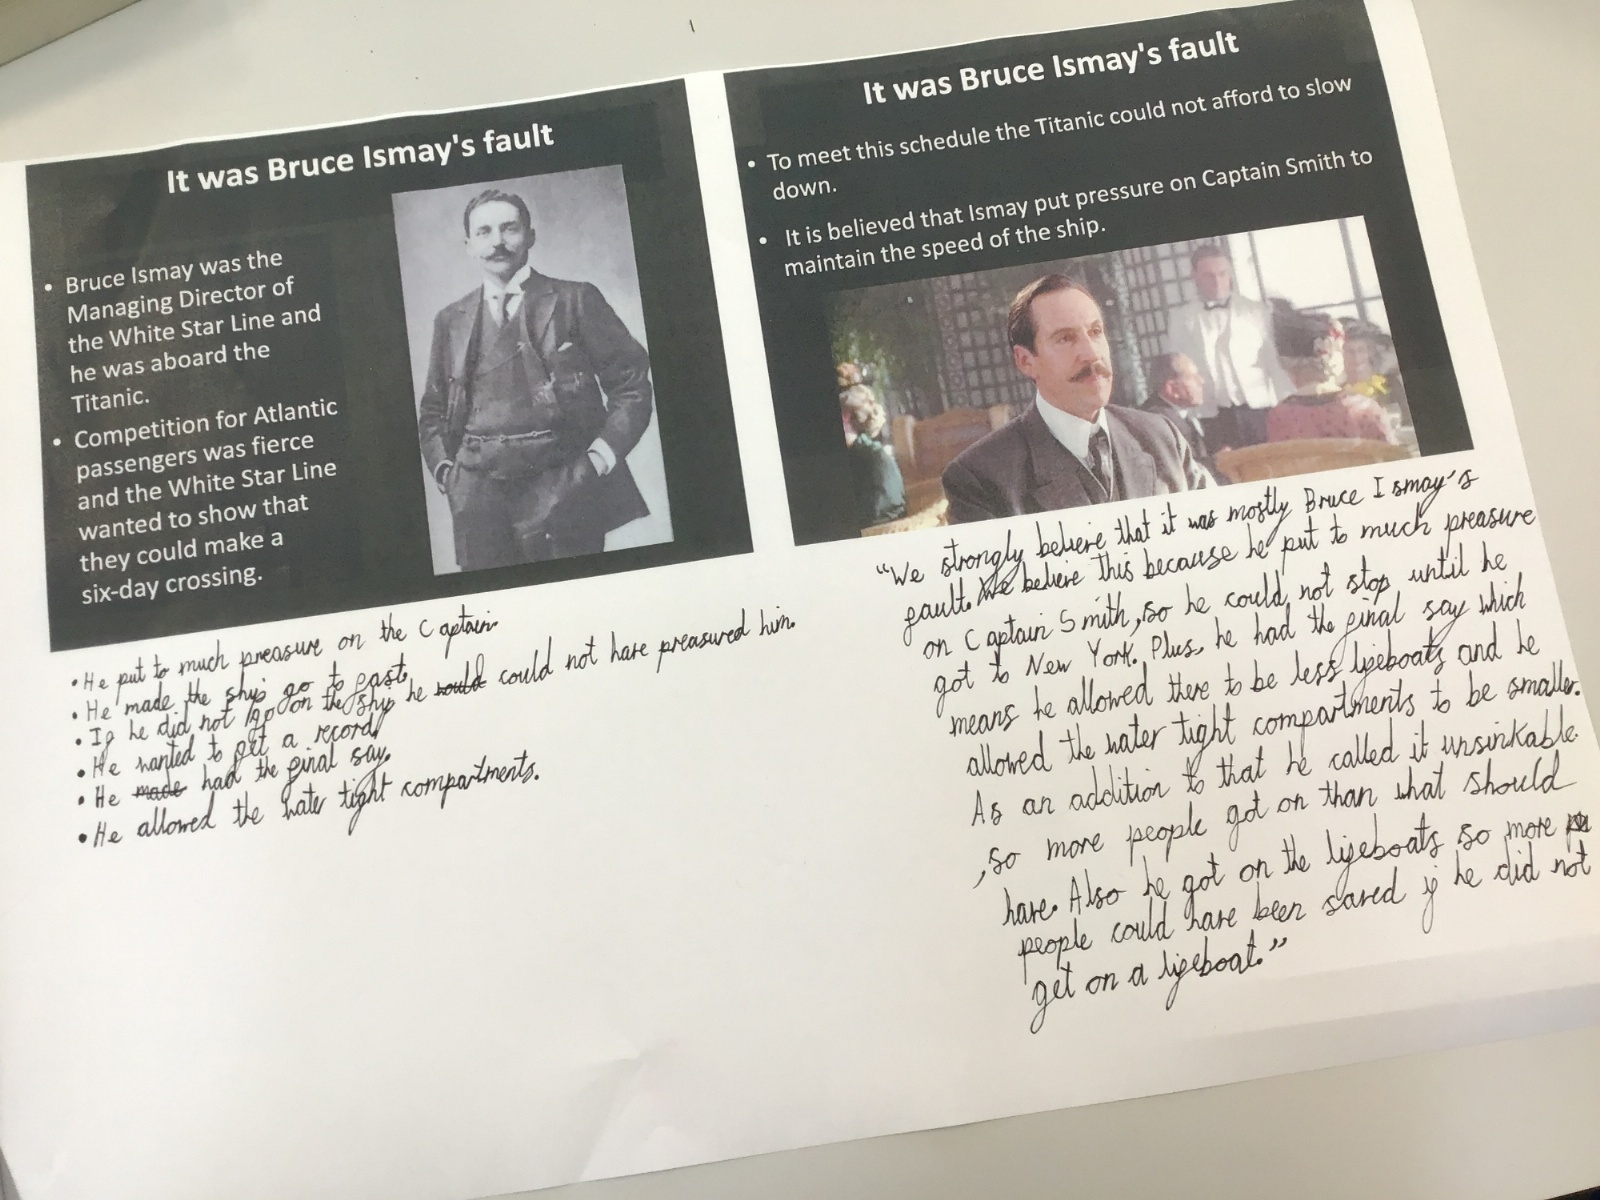 It was Bruce Ismay's fault
• Bruce Ismay was the
Managing Director of
the White Star Line and
he was aboard the
Titanic.
• Competition for Atlantic
passengers was fierce
and the White Star Line
wanted to show that
they could make a
six-day crossing.
• He put to much preasure on the Captain.
• He made the ship go to fast.
• If he did not go on the ship he would could not have preasured him.
• He wanted to get a record.
• He made had the final say.
• He allowed the water tight compartments.
It was Bruce Ismay's fault
• To meet this schedule the Titanic could not afford to slow
down.
• It is believed that Ismay put pressure on Captain Smith to
maintain the speed of the ship.
"We strongly believe that it was mostly Bruce Ismay's
fault. We believe this because he put to much preasure
on Captain Smith, so he could not stop until he
got to New York. Plus, he had the final say which
means he allowed there to be less lifeboats and he
allowed the water tight compartments to be smaller.
As an addition to that he called it unsinkable.
, so more people got on than what should
have. Also he got on the lifeboats so more
people could have been saved if he did not
get on a lifeboat."